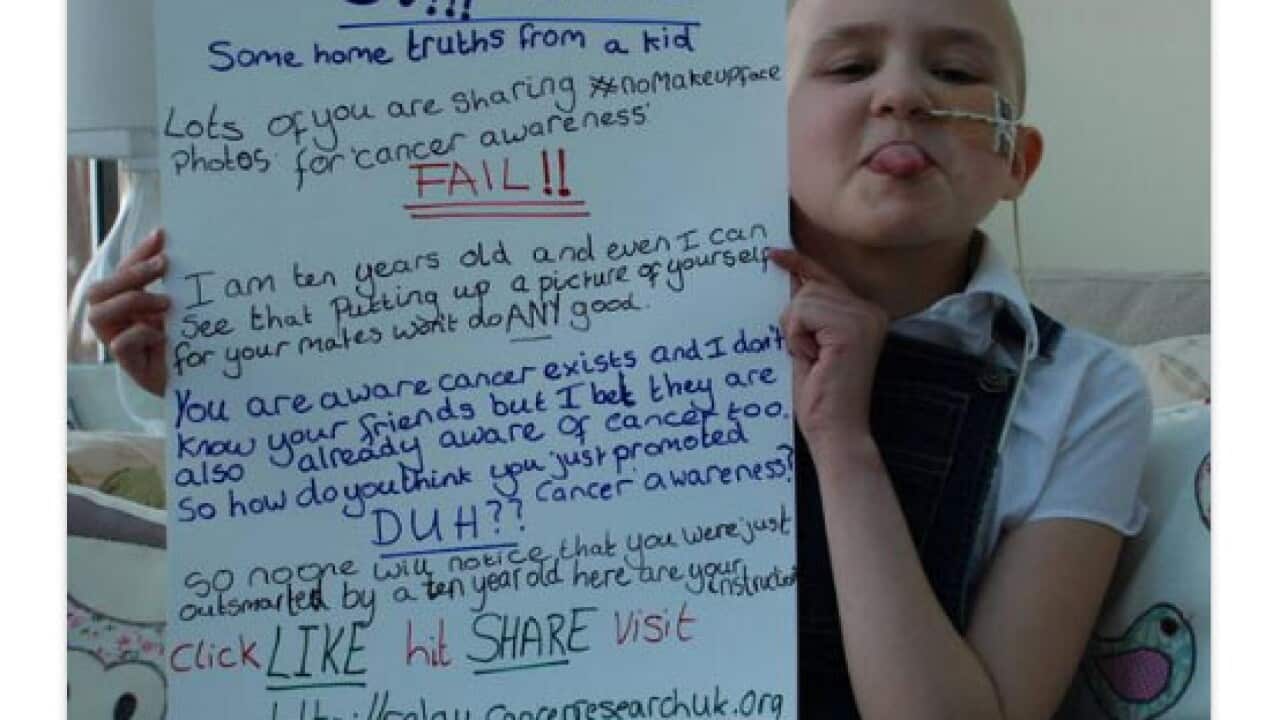 !!!
Some home truths from a kid
Lots of you are sharing #noMakeupface
photos for 'cancer awareness'
FAIL!!
I am ten years old and even I can
see that putting up a picture of yourself
for your mates won't do ANY good.
You are aware cancer exists and I don't
know your friends but I bet they are
also already aware of cancer too.
So how do you think you just promoted
cancer awareness?
DUH??
So no one will notice that you were just
outsmarted by a ten year old here are your
instruction
Click LIKE hit SHARE visit
cancerresearchuk.org